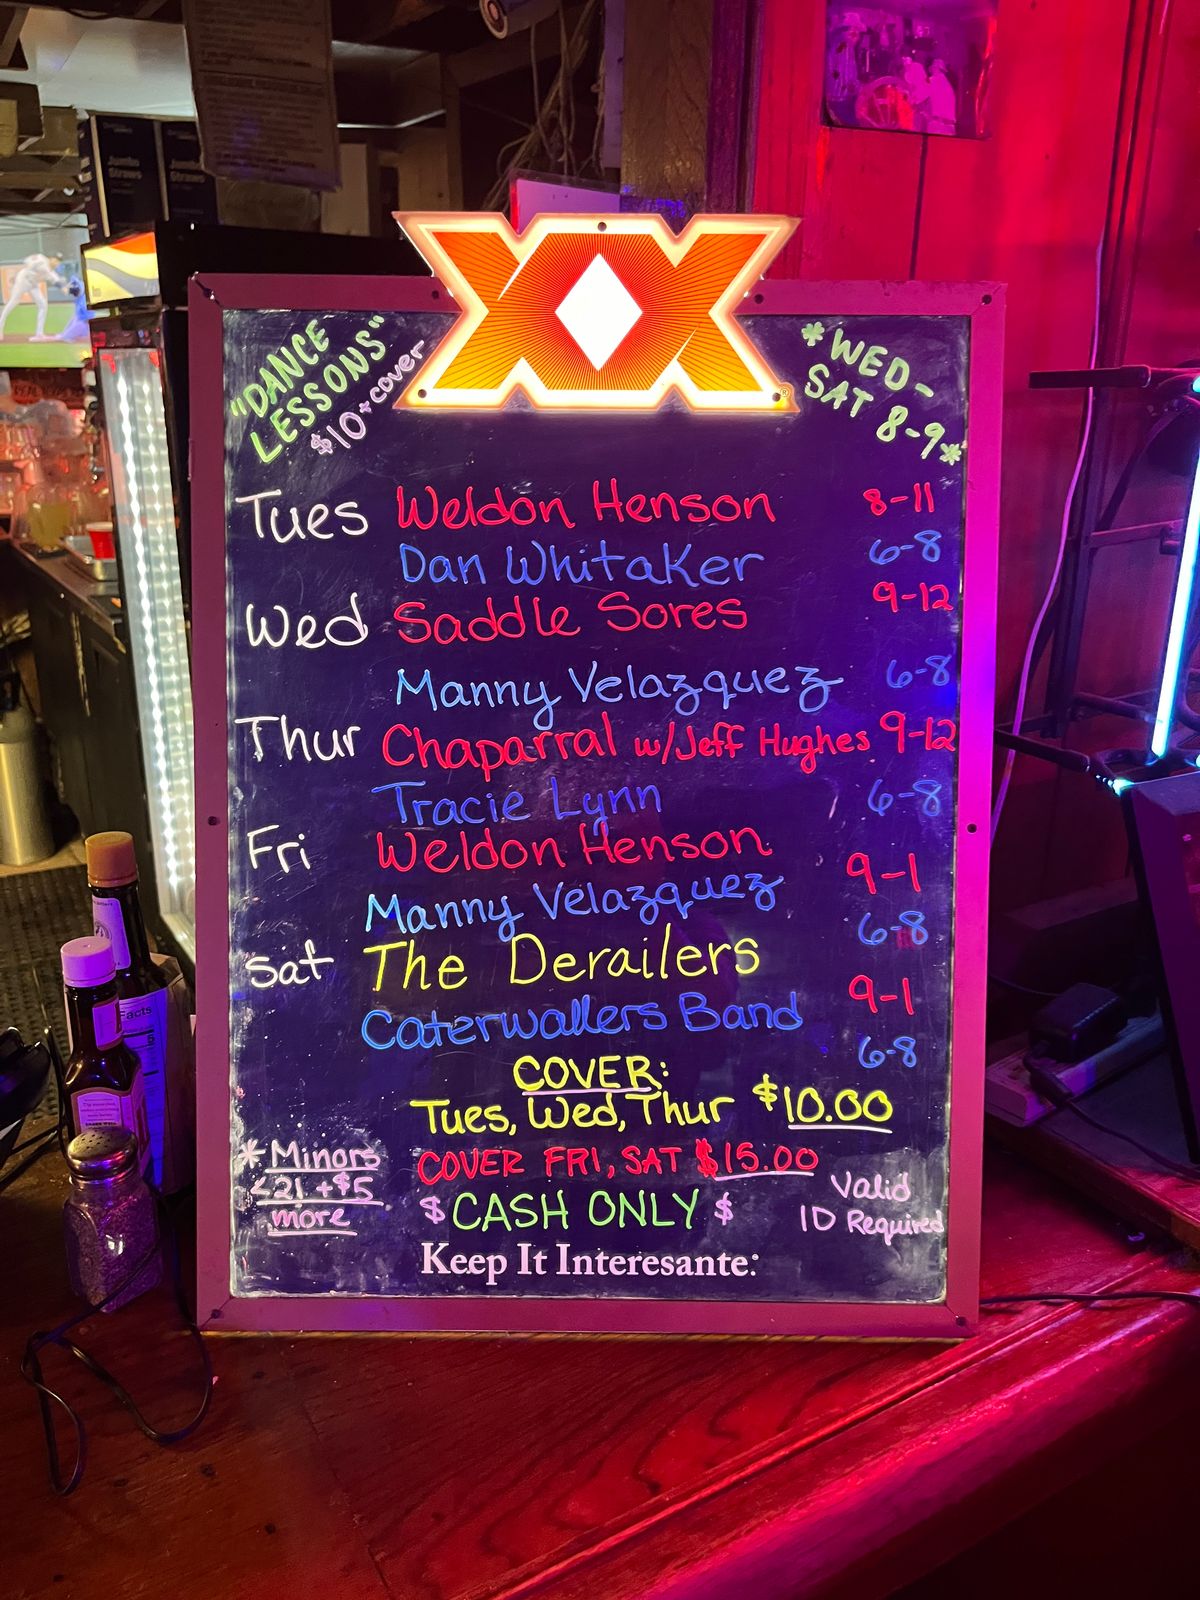 Jumbo
Straws
Jumbo
Straws
XX
"DANCE
LESSONS"
$10+cover
*WED-
SAT 8-9*
Tues Weldon Henson 8-11
Dan Whitaker 6-8
Wed Saddle Sores 9-12
Manny Velazquez 6-8
Thur Chaparral w/Jeff Hughes 9-12
Tracie Lynn 6-8
Fri Weldon Henson 9-1
Manny Velazquez 6-8
Sat The Derailers 9-1
Caterwallers Band 6-8
COVER:
Tues, Wed, Thur $10.00
COVER FRI, SAT $15.00
*Minors
<21 +$5
more
$ CASH ONLY $
Valid
ID Required
Keep It Interesante:
Facts